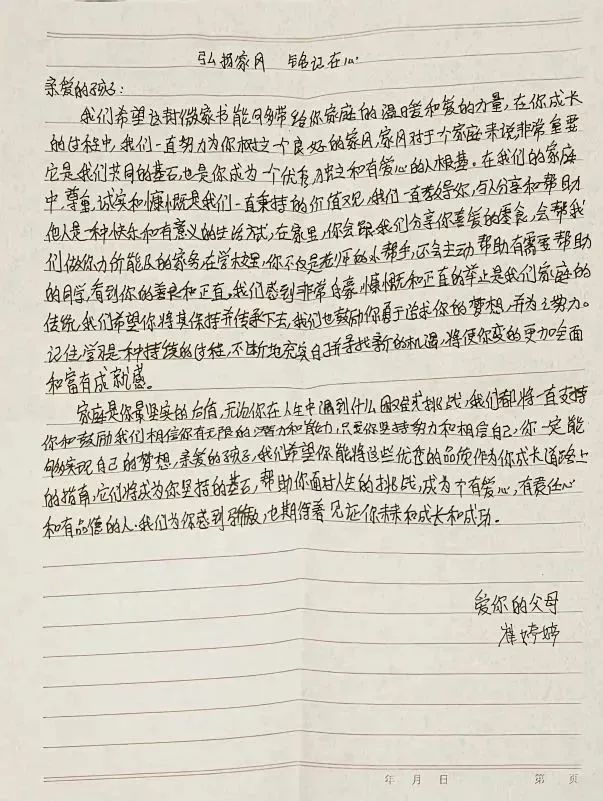 弘扬家风 铭记在心
亲爱的孩子:
我们希望这封微家书能够带给你家庭的温暖和爱的力量,在你成长
的过程中,我们一直努力为你树立一个良好的家风,家风对于一个家庭来说非常重要
它是我们共同的基石,也是你成为一个优秀,独立和有爱心的人根基。在我们的家庭
中,尊重,诚实和慷慨是我们一直秉持的价值观,我们一直教导你,与人分享和帮助
他人是一种快乐和有意义的生活方式,在家里,你会跟我们分享你喜爱的零食,会帮我
们做你力所能及的家务在学校里,你不仅是老师的小帮手,还会主动帮助有需要帮助
的同学,看到你的善良和正直,我们感到非常自豪,慷慨和正直的举止是我们家庭的
传统,我们希望你将其保持并传承下去,我们也鼓励你勇于追求你的梦想,并为之努力。
记住,学习是一种持续的过程,不断地充实自己并寻找新的机遇,将使你变的更加全面
和富有成就感。
家庭是你最坚实的后盾,无论你在人生中遇到什么困难或挑战,我们都将一直支持
你和鼓励我们相信你有无限的潜力和能力,只要你坚持努力和相信自己,你一定能
够实现自己的梦想,亲爱的孩子,我们希望你能将这些优秀的品质作为你成长道路上
的指南,它们将成为你坚持的基石,帮助你面对人生的挑战,成为个有爱心,有责任心
和有品德的人.我们为你感到骄傲,也期待着见证你未来和成长和成功。
爱你的父母
崔婷婷
年 月 日 第 页